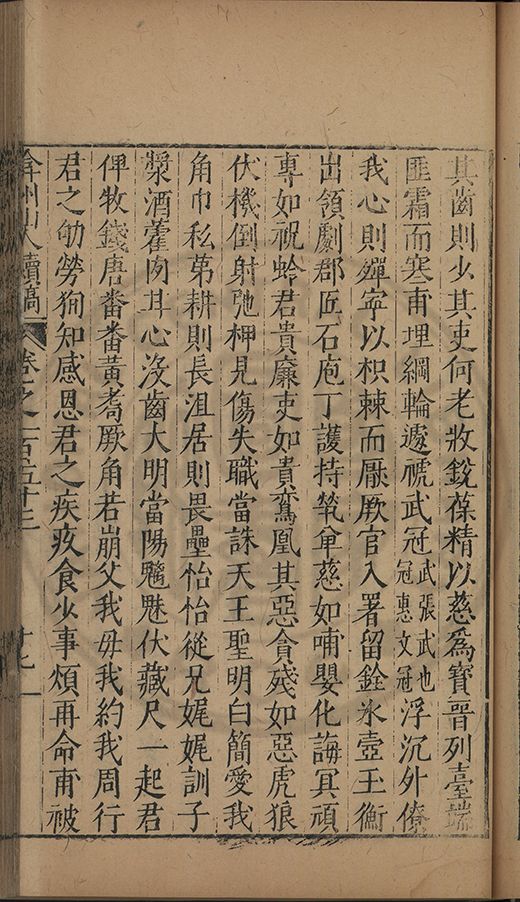 其齒則少其吏何老收銳葆精以慈爲寶晉列臺端
匪霜而寒甫埋綱輪遽褫武冠武張武也冠惠文冠浮沉外僚
我心則殫寧以枳棘而厭厥官入署留銓氷壺玉衡
出領劇郡匠石庖丁護持煢傘慈如哺嬰化誨冥頑
專如祝蛉君貴廉吏如貴鸞凰其惡貪殘如惡虎狼
伏機倒射弛柙見傷失職當誅天王聖明白簡愛我
角巾私第耕則長沮居則畏壘怡怡從兄娓娓訓子
漿酒藿肉耳心沒齒大明當陽魑魅伏藏尺一起君
俾牧錢唐番番黃耇厥角若崩父我毋我約我周行
君之劬勞狥知感恩君之疾疚食少事煩再命甫被
弇州山人續稿 卷之一百五十三 十七